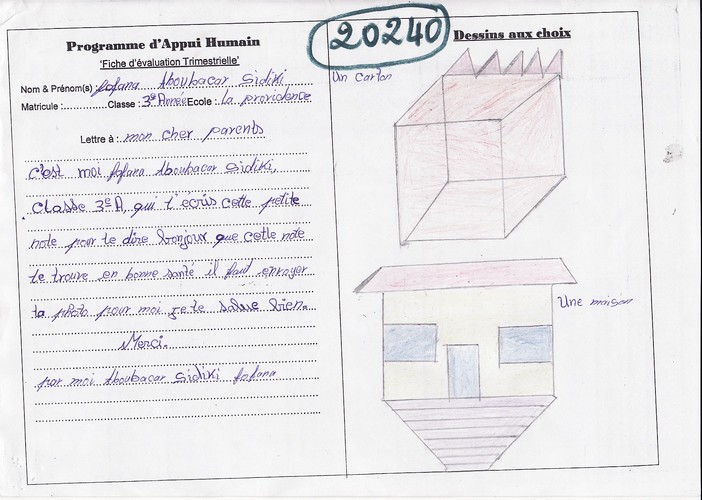 Programme d'Appui Humain
'Fiche d'évaluation Trimestrielle'
Nom & Prénom(s) : fofana Aboubacar Sidiki
Matricule :............ Classe : 3e Année Ecole : La providence
Lettre à : mon cher parents
c'est moi fofana Aboubacar Sidiki,
Classe 3e A, qui t'écris cette petite
note pour te dire bonjour que cette note
te trouve en bonne santé il faut envoyer
ta photo pour moi je te salue bien.
Merci.
par moi Aboubacar Sidiki fofana
20240
Dessins aux choix
Un carton
Une maison